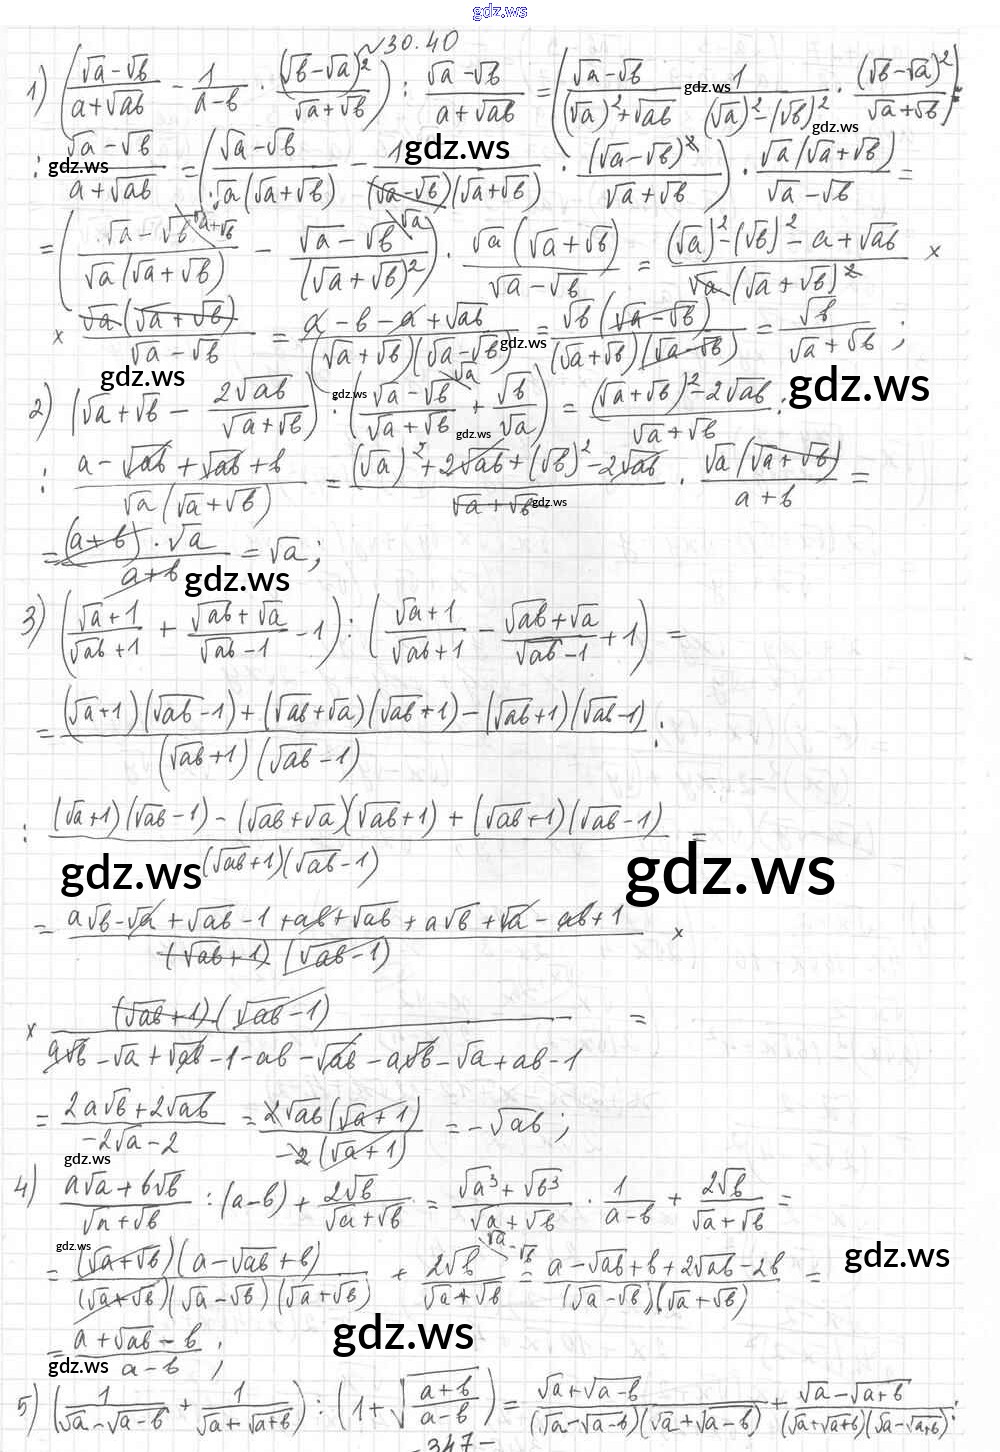 gdz.ws
№30.40
1) ((√a-√b)/(a+√ab) - 1/(a-b) · (√b-√a)²/(√a+√b)) : (√a-√b)/(a+√ab) = ((√a-√b)/((√a)²+√ab) 1/((√a)²-(√b)²) · (√b-√a)²/(√a+√b)) :
gdz.ws
gdz.ws
gdz.ws
gdz.ws
: (√a-√b)/(a+√ab) = ((√a-√b)/(√a(√a+√b)) - 1/((√a-√b)(√a+√b)) · (√a-√b)²/(√a+√b)) · √a(√a+√b)/(√a-√b) =
= ((√a-√b)/(√a(√a+√b)) - (√a-√b)/(√a+√b)²) · √a(√a+√b)/(√a-√b) = ((√a)²-(√b)²-a+√ab)/(√a(√a+√b)²) ×
× √a(√a+√b)/(√a-√b) = (a-b-a+√ab)/((√a+√b)(√a-√b)) = √b(√a-√b)/((√a+√b)(√a-√b)) = √b/(√a+√b) ;
gdz.ws
gdz.ws
gdz.ws
gdz.ws
2) (√a+√b - 2√ab/(√a+√b)) : ((√a-√b)/(√a+√b) + √b/√a) = ((√a+√b)²-2√ab)/(√a+√b) :
gdz.ws
: (a-√ab+√ab+b)/(√a(√a+√b)) = ((√a)²+2√ab+(√b)²-2√ab)/(√a+√b) · √a(√a+√b)/(a+b) =
gdz.ws
= (a+b)·√a/(a+b) = √a ;
gdz.ws
3) ((√a+1)/(√ab+1) + (√ab+√a)/(√ab-1) - 1) : ((√a+1)/(√ab+1) - (√ab+√a)/(√ab-1) + 1) =
= ((√a+1)(√ab-1)+(√ab+√a)(√ab+1)-(√ab+1)(√ab-1))/((√ab+1)(√ab-1)) :
: ((√a+1)(√ab-1)-(√ab+√a)(√ab+1)+(√ab+1)(√ab-1))/((√ab+1)(√ab-1)) =
gdz.ws
gdz.ws
= (a√b-√a+√ab-1+ab+√ab+a√b+√a-ab+1)/((√ab+1)(√ab-1)) ×
× (√ab+1)(√ab-1)/(a√b-√a+√ab-1-ab-√ab-a√b-√a+ab-1) =
= (2a√b+2√ab)/(-2√a-2) = 2√ab(√a+1)/(-2(√a+1)) = -√ab ;
gdz.ws
4) (a√a+b√b)/(√a+√b) : (a-b) + 2√b/(√a+√b) = (√a³+√b³)/(√a+√b) · 1/(a-b) + 2√b/(√a+√b) =
gdz.ws
gdz.ws
= (√a+√b)(a-√ab+b)/((√a+√b)(√a-√b)(√a+√b)) + 2√b/(√a+√b) = (a-√ab+b+2√ab-2b)/((√a-√b)(√a+√b)) =
= (a+√ab-b)/(a-b) ;
gdz.ws
gdz.ws
5) (1/(√a-√a-b) + 1/(√a+√a+b)) : (1+√((a+b)/(a-b))) = (√a+√a-b)/((√a-√a-b)(√a+√a-b)) + (√a-√a+b)/((√a+√a+b)(√a-√a+b)) :
-347-